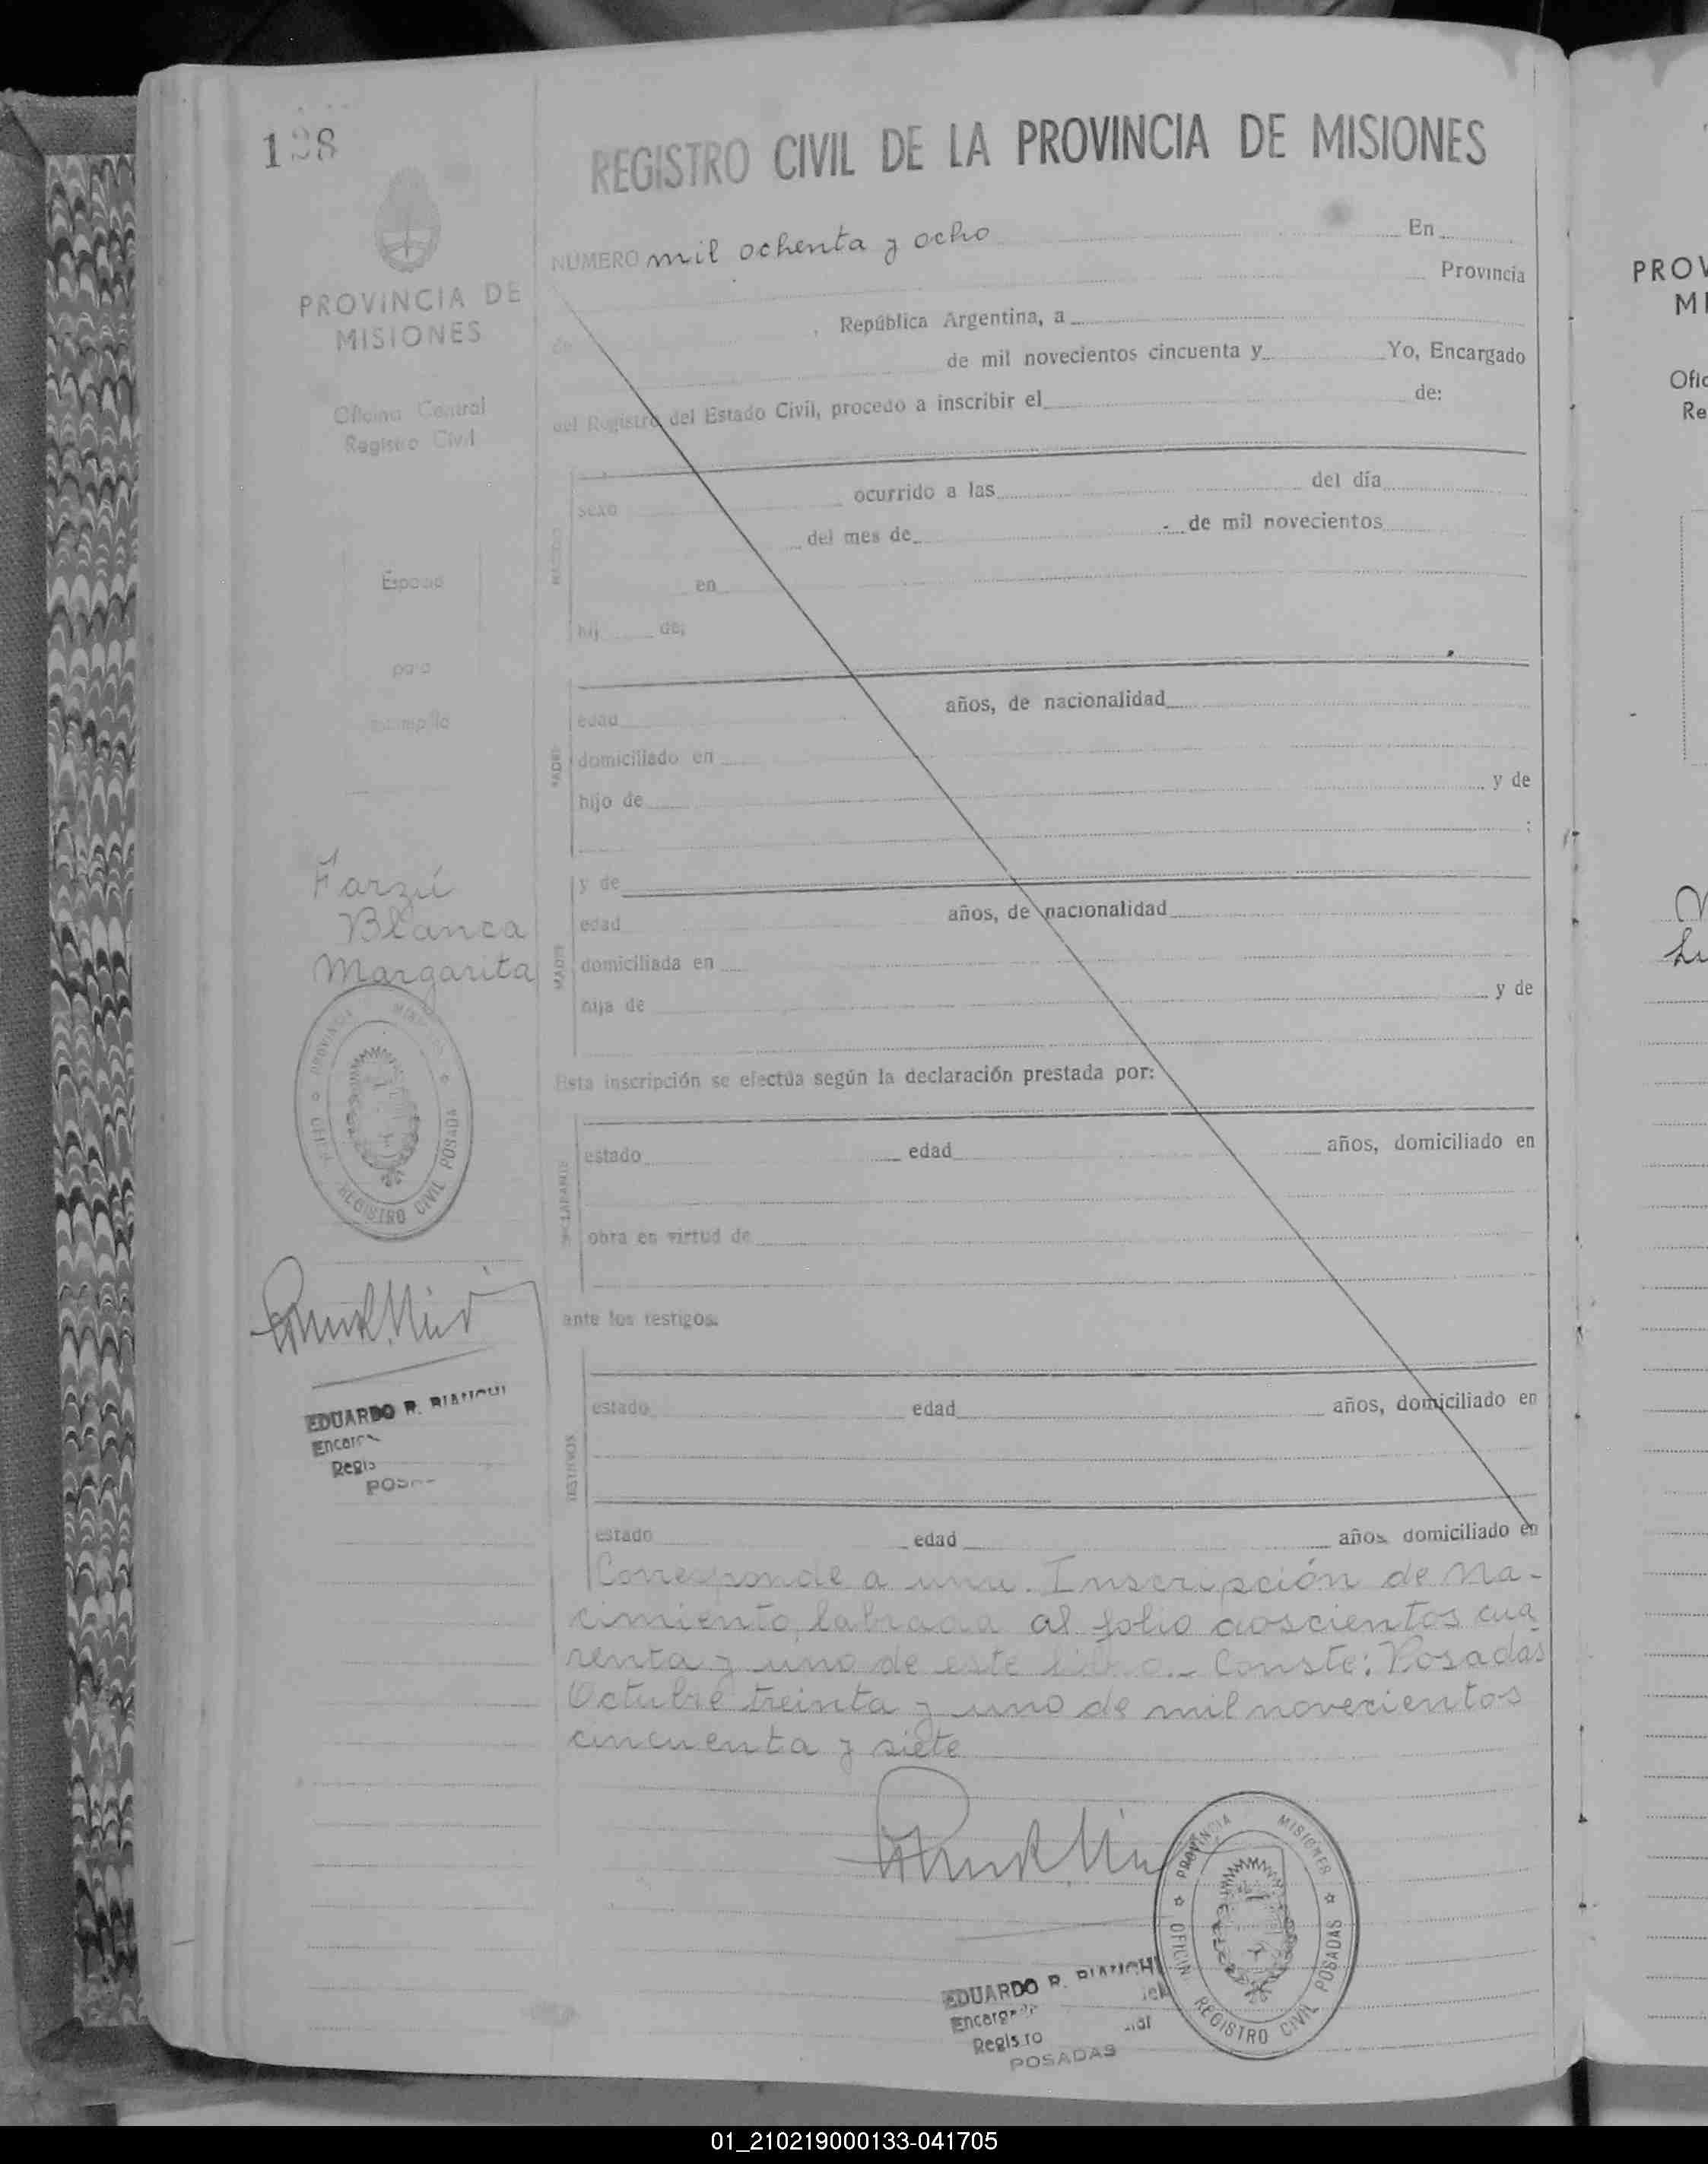 REGISTRO CIVIL DE LA PROVINCIA DE MISIONES
PROVINCIA DE
MISIONES
Oficina Central
Registro Civil
para
Farzú
Blanca
Margarita
PROVINCIA
REGISTRO CIVIL POSADA
EDUARDO R. BIANCHI
NUMERO mil ochenta y ocho En
Provincia
de República Argentina, a
de mil novecientos cincuenta y Yo, Encargado
del Registro del Estado Civil, procedo a inscribir el de:
sexo ocurrido a las del día
del mes de de mil novecientos
en
hij de:
PADRE
edad años, de nacionalidad
domiciliado en
hijo de y de
;
y de
MADRE
edad años, de nacionalidad
domiciliada en
hija de y de
Esta inscripción se efectúa según la declaración prestada por:
DECLARANTE
estado edad años, domiciliado en
obra en virtud de
ante los testigos:
TESTIGOS
estado edad años, domiciliado en
estado edad años, domiciliado en
Corresponde a una Inscripción de Na-
cimiento, labrada al folio doscientos cua
renta y uno de este libro.- Conste: Posadas
Octubre treinta y uno de mil novecientos
cincuenta y siete
EDUARDO R. BIANCHI
Registro
POSADAS
PROVINCIA MISIONES
OFICIN REGISTRO CIVIL POSADAS
PROV
MI
Ofic
Re
01_210219000133-041705